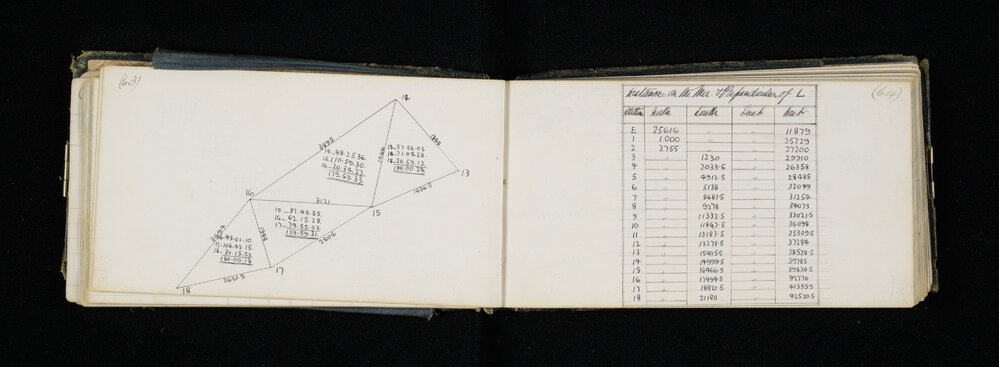 (63)
14
3895
1899
13.57.56.03.
14.71.09.58.
15.50.59.13
180.00.24.
14.48.25.36.
16.110.59.30.
179.59.33
13
1636.5
16
3121
15
15_37.48.55.
16_62.15.28.
17_79.55.08
179.59.31
1944
2806
46.43.01.10.
17.106.43.15.
18.30.15.53
180.00.18
17
2631.5
18
(64)
Distances on the Mer. & Perpendicular of L
Station North South East West
E 25616 " " 11879
1 1.000 " " 25729
2 2755 " " 27200
3 " 1230 " 29910
4 " 2033.5 " 26358
5 " 4912.5 " 28485
6 " 5138 " 32049
7 " 8681.5 " 31254
8 " 9278 " 34073
9 " 11332.5 " 33021.5
10 " 11867.5 " 36098
11 " 13183.5 " 35309.5
12 " 13278.5 " 37284
13 " " 38529.5
14 " 14999.5 " 39785
15 " 16466.5 " 39830.5
16 " 17494.5 " 42776
17 " 18821.5 " 41355.5
18 " 21180 " 42520.5